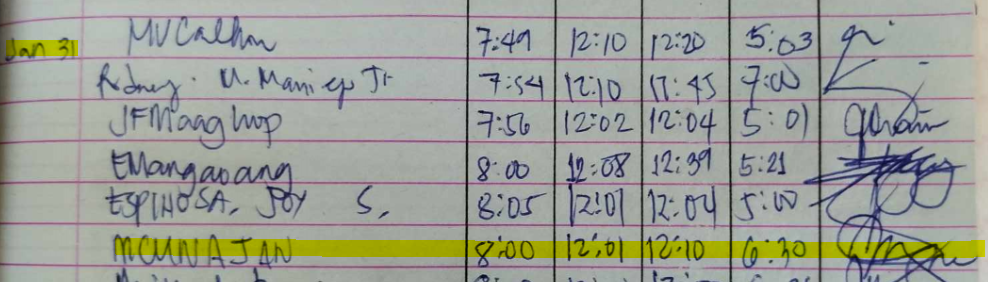 Jan 31 MVCalhm 7:49 12:10 12:20 5:03
Rdney. U. Maniep Jr 7:54 12:10 12:45 7:00
JFMaaghop 7:56 12:02 12:04 5:01
EMangaoang 8:00 12:08 12:39 5:21
ESPINOSA, JOY S, 8:05 12:01 12:04 5:00
MCUNAJAN 8:00 12:01 12:10 6:30